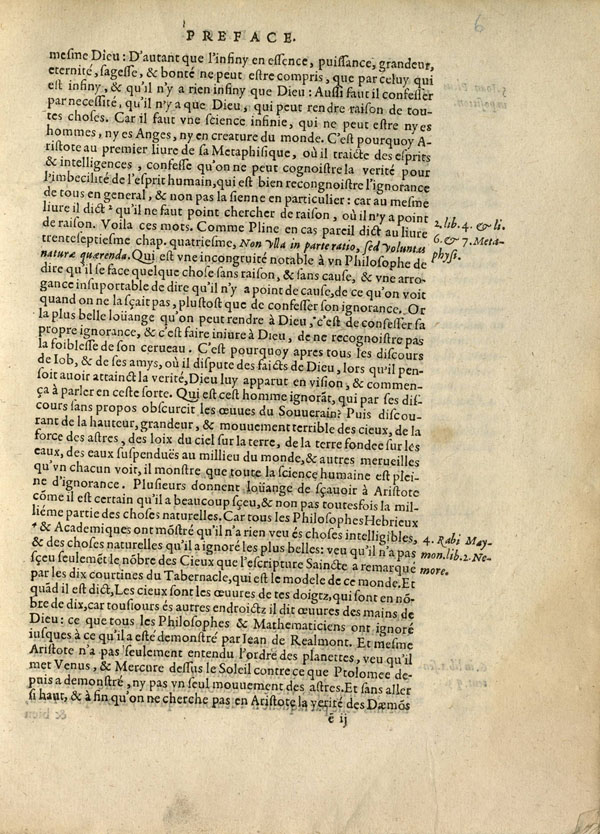 PREFACE.
6
mesme Dieu: D'autant que l'infiny en essence, puissance, grandeur,
eternité, sagesse, & bonté ne peut estre compris, que par celuy qui
est infiny, & qu'il n'y a rien infiny que Dieu: Aussi faut il confesser
par necessité, qu'il n'y a que Dieu, qui peut rendre raison de tou-
tes choses. Car il faut vne science infinie, qui ne peut estre ny es
hommes, ny es Anges, ny en creature du monde. C'est pourquoy A-
ristote au premier liure de sa Metaphisique, où il traicte des esprits
& intelligences, confesse qu'on ne peut cognoistre la verité pour
l'imbecilité de l'esprit humain, qui est bien recongnoistre l'ignorance
de tous en general, & non pas la sienne en particulier: car au mesme
liure il dict ² qu'il ne faut point chercher de raison, où il n'y a point
de raison. Voila ces mots. Comme Pline en cas pareil dict au liure
trenteseptiesme chap. quatriesme, Non vlla in parte ratio, sed voluntas
naturæ quærenda. Qui est vne incongruité notable à vn Philosophe de
dire qu'il se face quelque chose sans raison, & sans cause, & vne arro-
gance insuportable de dire qu'il n'y a point de cause, de ce qu'on voit
quand on ne la sçait pas, plustost que de confesser son ignorance. Or
la plus belle loüange qu'on peut rendre à Dieu, c'est de confesser sa
propre ignorance, & c'est faire iniure à Dieu, de ne recognoistre pas
la foiblesse de son cerueau. C'est pourquoy apres tous les discours
de Iob, & de ses amys, où il dispute des faicts de Dieu, lors qu'il pen-
soit auoir attainct la verité, Dieu luy apparut en vision, & commen-
ça à parler en ceste sorte. Qui est cest homme ignorãt, qui par ses dis-
cours sans propos obscurcit les œuures du Souuerain? Puis discou-
rant de la hauteur, grandeur, & mouuement terrible des cieux, de la
force des astres, des loix du ciel sur la terre, de la terre fondee sur les
eaux, des eaux suspenduës au millieu du monde, & autres merueilles
qu'vn chacun voit, il monstre que toute la science humaine est plei-
ne d'ignorance. Plusieurs donnent loüange de sçauoir à Aristote
cõme il est certain qu'il a beaucoup sçeu, & non pas toutesfois la mil-
liéme partie des choses naturelles. Car tous les Philosophes Hebrieux
⁴ & Academiques ont mõstré qu'il n'a rien veu és choses intelligibles,
& des choses naturelles qu'il a ignoré les plus belles: veu qu'il n'a pas
sçeu seulemẽt le nõbre des Cieux que l'escripture Saincte a remarqué
par les dix courtines du Tabernacle, qui est le modele de ce monde. Et
quãd il est dict, Les cieux sont les œuures de tes doigtz, qui sont en nõ-
bre de dix, car tousiours és autres endroictz il dit œuures des mains de
Dieu: ce que tous les Philosophes & Mathematiciens ont ignoré
iusques à ce qu'il a esté demonstré par Iean de Realmont. Et mesme
Aristote n'a pas seulement entendu l'ordre des planettes, veu qu'il
met Venus, & Mercure dessus le Soleil contre ce que Ptolomee de-
puis a demonstré, ny pas vn seul mouuement des astres. Et sans aller
si haut, & à fin qu'on ne cherche pas en Aristote la verité des Dæmõs
ẽ ij
2. lib. 4. & li.
6. & 7. Meta-
physi.
4. Rabi May-
mon. lib. 2. Ne-
more.